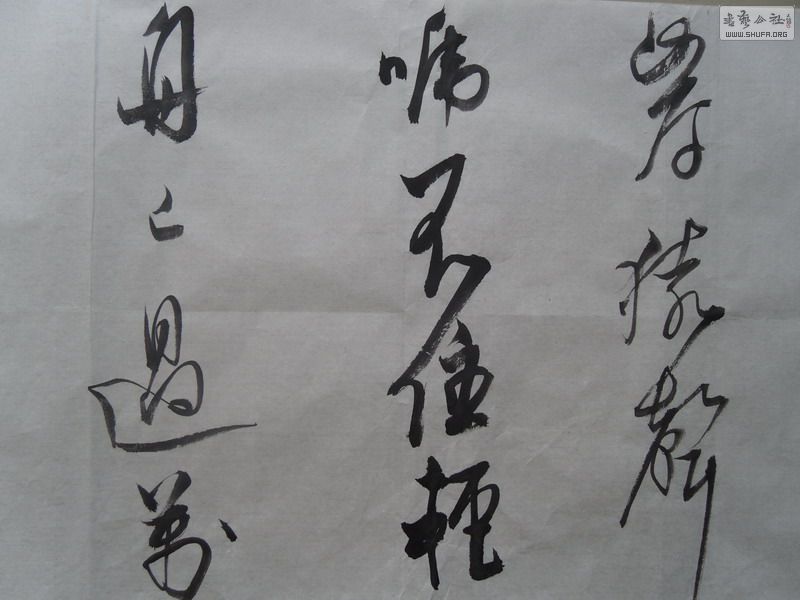 岸猿聲
啼不住輕
舟已過萬
书艺公社
WWW.SHUFA.ORG